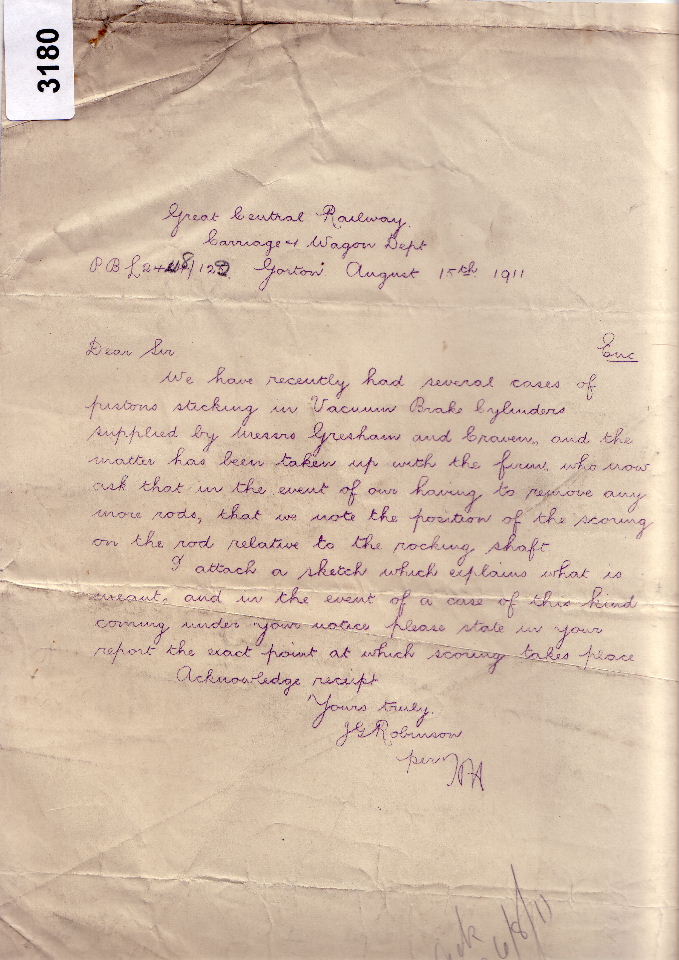 3180
Great Central Railway.
Carriage & Wagon Dept
Gorton August 15th 1911
Dear Sir
Enc
We have recently had several cases of
pistons sticking in Vacuum Brake Cylinders
supplied by Messrs Gresham and Craven, and the
matter has been taken up with the firm, who now
ask that in the event of our having to remove any
more rods, that we note the position of the scoring
on the rod relative to the rocking shaft
I attach a sketch which explains what is
meant, and in the event of a case of this kind
coming under your notice please state in your
report the exact point at which scoring takes place
Acknowledge receipt
Yours truly.
JG Robinson
per